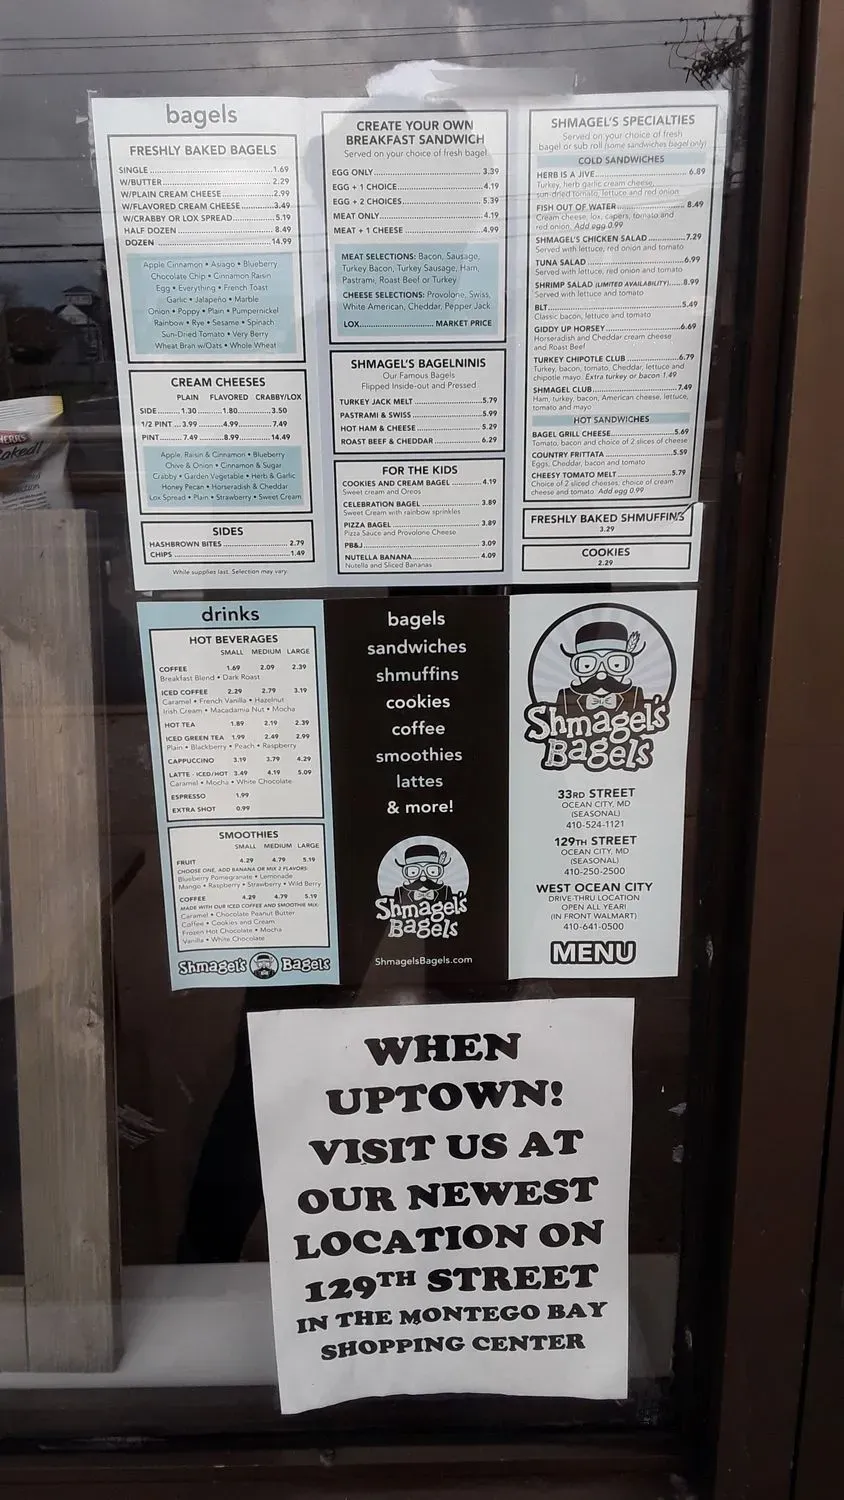 bagels
FRESHLY BAKED BAGELS
SINGLE 1.69
W/BUTTER 2.29
W/PLAIN CREAM CHEESE 2.99
W/FLAVORED CREAM CHEESE 3.49
W/CRABBY OR LOX SPREAD 5.19
HALF DOZEN 8.49
DOZEN 14.99
Apple Cinnamon • Asiago • Blueberry
Chocolate Chip • Cinnamon Raisin
Egg • Everything • French Toast
Garlic • Jalapeño • Marble
Onion • Poppy • Plain • Pumpernickel
Rainbow • Rye • Sesame • Spinach
Sun-Dried Tomato • Very Berry
Wheat Bran w/Oats • Whole Wheat
CREAM CHEESES
PLAIN FLAVORED CRABBY/LOX
SIDE 1.30 1.80 3.50
1/2 PINT 3.99 4.99 7.49
PINT 7.49 8.99 14.49
Apple, Raisin & Cinnamon • Blueberry
Chive & Onion • Cinnamon & Sugar
Crabby • Garden Vegetable • Herb & Garlic
Honey Pecan • Horseradish & Cheddar
Lox Spread • Plain • Strawberry • Sweet Cream
SIDES
HASHBROWN BITES 2.79
CHIPS 1.49
While supplies last. Selection may vary.
CREATE YOUR OWN
BREAKFAST SANDWICH
Served on your choice of fresh bagel
EGG ONLY 3.39
EGG + 1 CHOICE 4.19
EGG + 2 CHOICES 5.39
MEAT ONLY 4.19
MEAT + 1 CHEESE 4.99
MEAT SELECTIONS: Bacon, Sausage,
Turkey Bacon, Turkey Sausage, Ham,
Pastrami, Roast Beef or Turkey
CHEESE SELECTIONS: Provolone, Swiss,
White American, Cheddar, Pepper Jack
LOX MARKET PRICE
SHMAGEL'S BAGELNINIS
Our Famous Bagels
Flipped Inside-out and Pressed
TURKEY JACK MELT 5.79
PASTRAMI & SWISS 5.99
HOT HAM & CHEESE 5.29
ROAST BEEF & CHEDDAR 6.29
FOR THE KIDS
COOKIES AND CREAM BAGEL 4.19
Sweet cream and Oreos
CELEBRATION BAGEL 3.89
Sweet Cream with rainbow sprinkles
PIZZA BAGEL 3.89
Pizza Sauce and Provolone Cheese
PB&J 3.09
NUTELLA BANANA 4.09
Nutella and Sliced Bananas
SHMAGEL'S SPECIALTIES
Served on your choice of fresh
bagel or sub roll (some sandwiches bagel only)
COLD SANDWICHES
HERB IS A JIVE 6.89
Turkey, herb garlic cream cheese,
sun-dried tomato, lettuce and red onion
FISH OUT OF WATER 8.49
Cream cheese, lox, capers, tomato and
red onion. Add egg 0.99
SHMAGEL'S CHICKEN SALAD 7.29
Served with lettuce, red onion and tomato
TUNA SALAD 6.99
Served with lettuce, red onion and tomato
SHRIMP SALAD (LIMITED AVAILABILITY) 8.99
Served with lettuce and tomato
BLT 5.49
Classic bacon, lettuce and tomato
GIDDY UP HORSEY 6.69
Horseradish and Cheddar cream cheese
and Roast Beef
TURKEY CHIPOTLE CLUB 6.79
Turkey, bacon, tomato, Cheddar, lettuce and
chipotle mayo. Extra turkey or bacon 1.49
SHMAGEL CLUB 7.49
Ham, turkey, bacon, American cheese, lettuce,
tomato and mayo
HOT SANDWICHES
BAGEL GRILL CHEESE 5.69
Tomato, bacon and choice of 2 slices of cheese
COUNTRY FRITTATA 5.59
Eggs, Cheddar, bacon and tomato
CHEESY TOMATO MELT 5.79
Choice of 2 sliced cheeses, choice of cream
cheese and tomato Add egg 0.99
FRESHLY BAKED SHMUFFINS
3.29
COOKIES
2.29
drinks
HOT BEVERAGES
SMALL MEDIUM LARGE
COFFEE 1.69 2.09 2.39
Breakfast Blend • Dark Roast
ICED COFFEE 2.29 2.79 3.19
Caramel • French Vanilla • Hazelnut
Irish Cream • Macadamia Nut • Mocha
HOT TEA 1.89 2.19 2.39
ICED GREEN TEA 1.99 2.49 2.99
Plain • Blackberry • Peach • Raspberry
CAPPUCCINO 3.19 3.79 4.29
LATTE - ICED/HOT 3.49 4.19 5.09
Caramel • Mocha • White Chocolate
ESPRESSO 1.99
EXTRA SHOT 0.99
SMOOTHIES
SMALL MEDIUM LARGE
FRUIT 4.29 4.79 5.19
CHOOSE ONE, ADD BANANA OR MIX 2 FLAVORS:
Blueberry Pomegranate • Lemonade
Mango • Raspberry • Strawberry • Wild Berry
COFFEE 4.29 4.79 5.19
MADE WITH OUR ICED COFFEE AND SMOOTHIE MIX:
Caramel • Chocolate Peanut Butter
Coffee • Cookies and Cream
Frozen Hot Chocolate • Mocha
Vanilla • White Chocolate
Shmagel's Bagels
bagels
sandwiches
shmuffins
cookies
coffee
smoothies
lattes
& more!
Shmagel's
Bagels
ShmagelsBagels.com
Shmagel's
Bagels
33RD STREET
OCEAN CITY, MD
(SEASONAL)
410-524-1121
129TH STREET
OCEAN CITY, MD
(SEASONAL)
410-250-2500
WEST OCEAN CITY
DRIVE-THRU LOCATION
OPEN ALL YEAR!
(IN FRONT WALMART)
410-641-0500
MENU
WHEN
UPTOWN!
VISIT US AT
OUR NEWEST
LOCATION ON
129TH STREET
IN THE MONTEGO BAY
SHOPPING CENTER